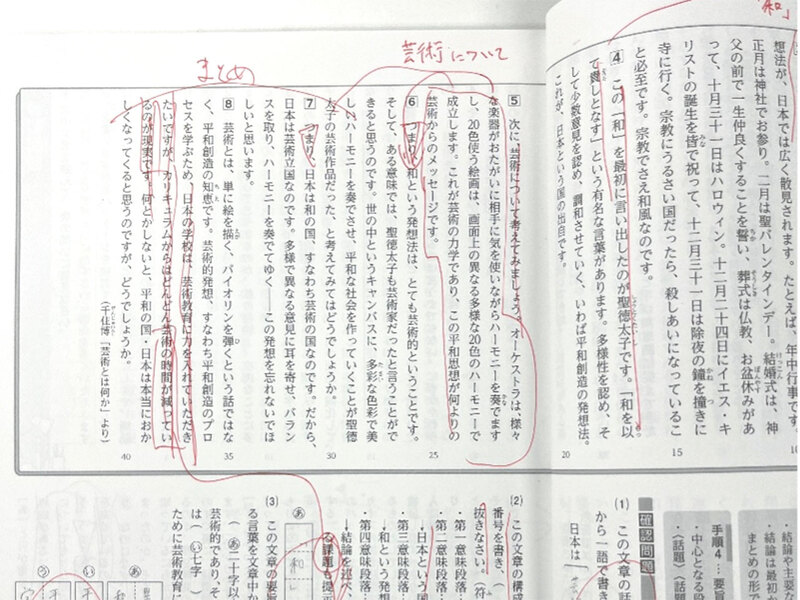 「和」
想法が、日本では広く散見されます。たとえば、年中行事です。
正月は神社でお参り。二月は聖バレンタインデー。結婚式は、神
父の前で一生仲良くすることを誓い、葬式は仏教、お盆休みがあ
って、十月三十一日はハロウィン。十二月二十四日にイエス・キ
リストの誕生を皆で祝って、十二月三十一日は除夜の鐘を撞きに
寺に行く。宗教にうるさい国だったら、殺しあいになっているこ
と必至です。宗教でさえ和風なのです。
4 この「和」を最初に言い出したのが聖徳太子です。「和を以
て貴しとなす」という有名な言葉があります。多様性を認め、そ
して少数意見を認め、調和させていく、いわば平和創造の発想法。
これが、日本という国の出自です。
10
15
20
芸術について
5 次に、芸術について考えてみましょう。オーケストラは、様々
な楽器がおたがいに相手に気を使いながらハーモニーを奏でます
し、20色使う絵画は、画面上の異なる多様な20色のハーモニーで
成立します。これが芸術の力学であり、この平和思想が何よりの
芸術からのメッセージです。
6 つまり、和という発想法は、とても芸術的ということです。
そして、ある意味では、聖徳太子も芸術家だったと言うことがで
きると思うのです。世の中というキャンバスに、多彩な色彩で美
しいハーモニーを奏でさせ、平和な社会を作っていくことが聖徳
太子の芸術作品だった、と考えてみてはどうでしょうか。
まとめ
7 つまり、日本は和の国、すなわち芸術の国なのです。だから、
日本は芸術立国なのです。多様で異なる意見に耳を寄せ、バラン
スを取り、ハーモニーを奏でてゆく――この発想を忘れないでほ
しいと思います。
8 芸術とは、単に絵を描く、バイオリンを弾くという話ではな
く、平和創造の知恵です。芸術的発想、すなわち平和創造のプロ
セスを学ぶため、日本の学校は、芸術教育に力を入れていただき
たいですが、カリキュラムからはどんどん芸術の時間が減ってい
るのが現実です。何とかしないと、平和の国・日本は本当におか
しくなってくると思うのですが、どうでしょうか。
（千住博「芸術とは何か」より）
25
30
35
40
・結論や主要な
・結論は最初か
まとめの形で
手順4…要旨
・中心となる
・〈話題〉〈話題
確認問題
(1) この文章の話
から一語で書き
日本は「
(2) この文章の構成
番号を書き、（
抜きなさい。（符
・第一意味段落
・第二意味段落
→日本という
・第三意味段落
→和という発想
・第四意味段落
→結論を述べ
る課題も提示
あ
和
(3) この文章の要旨
る言葉を文章中か
（ あ二十字以
芸術的であり、そ
は（ い七字 ）
ために芸術教育に
あ
い
う
和
平